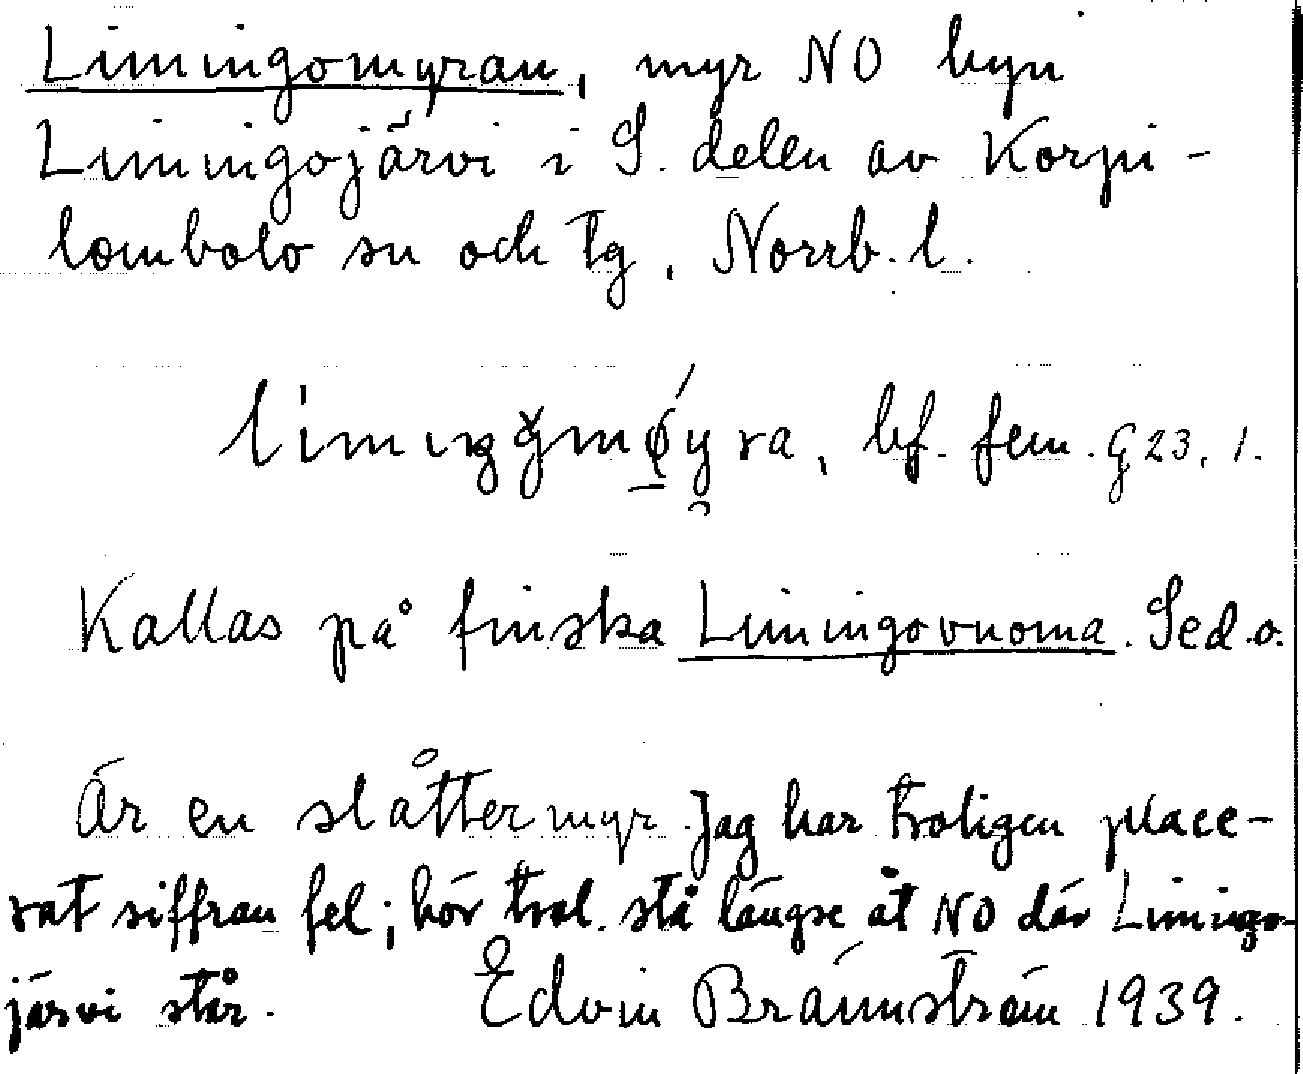 Liminingomyran, myr NO byn
Liminingojärvi i S. delen av Korpi-
lombolo sn och tg, Norrb. l.
bf. fem. G 23, 1.
Kallas på finska Liminingovuoma. Se d. o.
Är en slåttermyr. Jag har troligen place-
rat siffran fel; bör trol. stå längre åt NO där Liminingo-
järvi står. Edvin Brännström 1939.